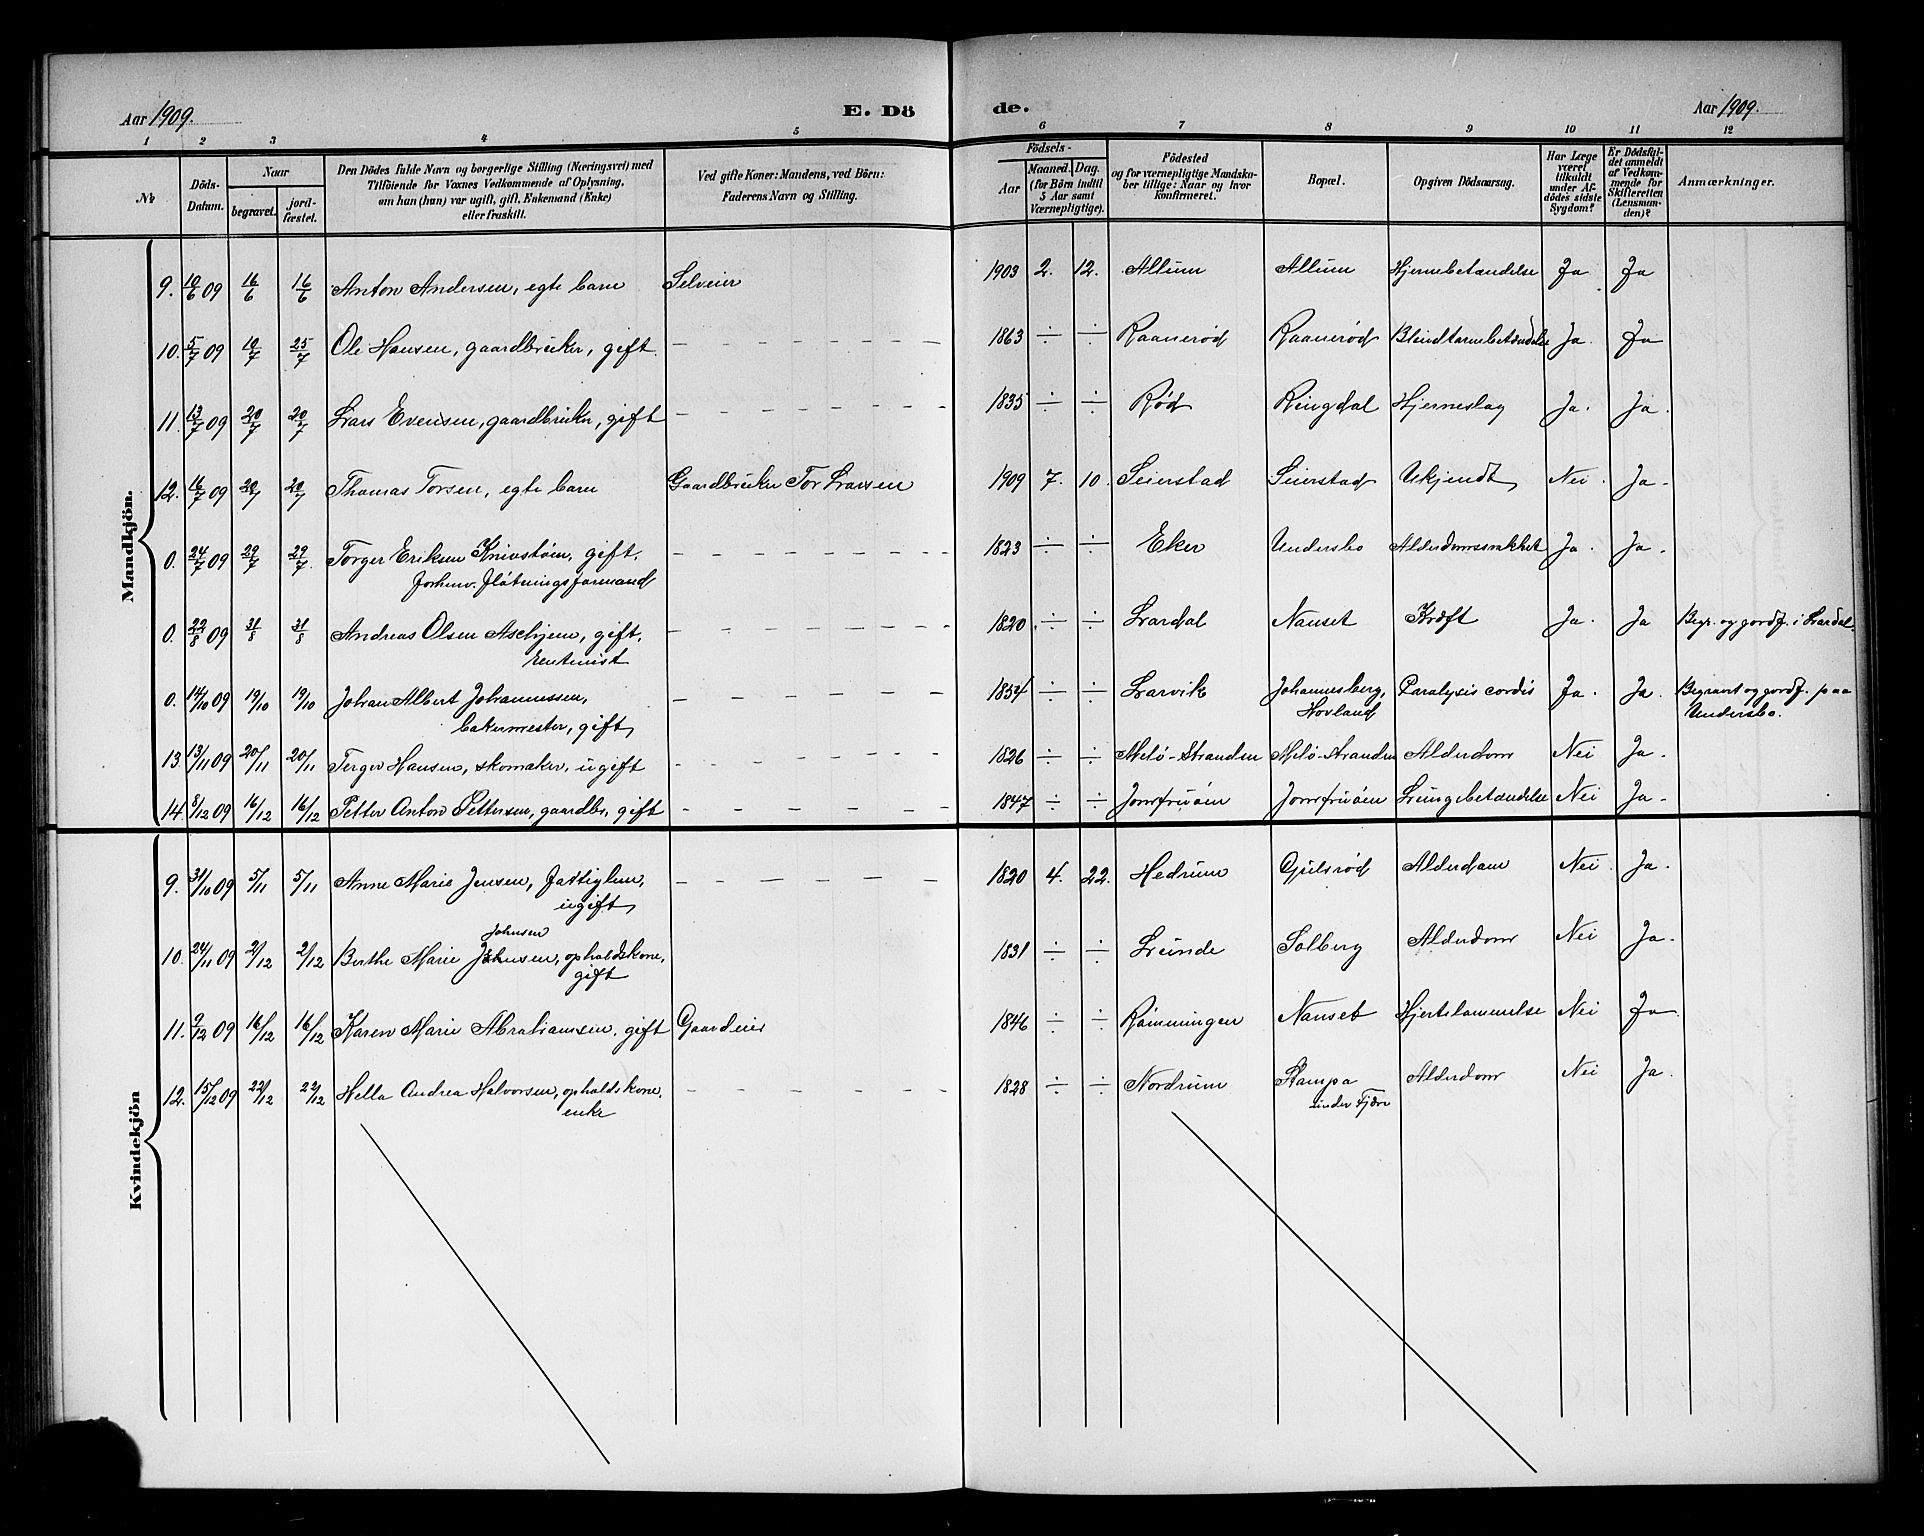 Aar 1909.
E. Dö
de.
Aar 1909.
1 2 3 4 5
6 7 8 9 10 11 12
№
Döds-Datum.
Naar
begravet.
jord-fæstet.
Den Dödes fulde Navn og borgerlige Stilling (Næringsvei) med
Tilföiende for Voxnes Vedkommende af Oplysning,
om han (hun) var ugift, gift, Enkemand (Enke)
eller fraskilt.
Ved gifte Koner: Mandens, ved Börn:
Faderens Navn og Stilling.
Födsels-
Aar
Maaned. Dag.
(for Börn indtil
5 Aar samt
Værnepligtige).
Födested
og for værnepligtige Mandska-
ber tillige: Naar og hvor
konfirmeret.
Bopæl.
Opgiven Dödsaarsag.
Har Læge
været
tilkaldt
under Af-
dödes sidste
Sygdom?
Er Dödsfal-
det anmeldt
af Vedkom-
mende for
Skifteretten
(Lensman-
den)?
Anmærkninger.
Mandkjön.
9. 10/6 09 16/6 16/6 Anton Andersen, egte barn Selveier 1903 2. 12. Allum Allum Hjernebetændelse Ja Ja
10. 5/7 09 10/7 25/7 Ole Hansen, gaardbruker, gift. — 1863 ÷ ÷ Raanerød Raanerød Blindtarmbetændelse Ja. Ja
11. 13/7 09 20/7 20/7 Lars Evensen, gaardbruker, gift — 1835 ÷ ÷ Rød Ringdal Hjerneslag Ja. Ja.
12. 16/7 09 20/7 20/7 Thomas Torsen, egte barn Gaardbruker Tor Larsen 1909 7. 10. Seierstad Seierstad Ukjendt Nei. Ja.
0. 24/7 09 29/7 29/7. Torger Eriksen Knivstøen, gift. — 1823 ÷ ÷ Eker Undersbo Alderdomssvakhet Ja. Ja.
forhenv. fløtningsformand
0. 22/8 09 31/8 31/8 Andreas Olsen Aschjem, gift. — 1820 ÷ ÷ Lardal Nanset Kræft Ja. Ja Begr. og jordf. i Lardal.
rentenist
0. 14/10 09 19/10 19/10 Johan Albert Johannessen, — 1854 ÷ ÷ Larvik Johannesberg, Paralysis cordis Ja. Ja. Begravet og jordf. paa
bakermester, gift Hovland Undersbo.
13. 13/11 09 20/11 20/11 Terger Hansen, skomaker, ugift — 1826 ÷ ÷ Melø-Stranden Melø-Stranden Alderdom Nei Ja.
14. 8/12 09 16/12 16/12 Petter Anton Pettersen, gaardbr, gift — 1847 ÷ ÷ Jomfruøen Jomfruøen Lungebetændelse Nei Ja.
Kvindekjön
9. 31/10 09 5/11 5/11 Anne Marie Jensen, fattiglem, — 1820 4. 22. Hedrum Gjulsrød Alderdom Nei. Ja.
ugift
Johnsen
10. 24/11 09 2/12 2/12 Berthe Marie Johnsen, opholdskone, 1831 ÷ ÷ Lunde Solberg Alderdom Nei Ja.
gift
11. 9/12 09 16/12 16/12 Karen Marie Abrahamsen, gift Gaardeier 1846 ÷ ÷ Rømmingen Nanset Hjertelammelse Nei Ja.
12. 15/12 09 22/12 22/12 Hella Andrea Halvorsen, opholdskone, — 1828 ÷ ÷ Nordrum Stampa Alderdom Nei Ja.
enke under Fjære